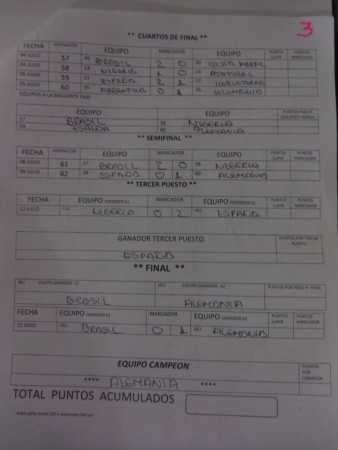 3
** CUARTOS DE FINAL **
FECHA EQUIPO MARCADOR EQUIPO PUNTOS LLAVE PUNTOS MARCADOR
04 JULIO 57 49 BRASIL 2 0 50 COSTA
04 JULIO 58 53 NIGERIA 1 0 54 PORTUGAL
05 JULIO 59 51 ESPAÑA 2 1 52 INGLATERRA
05 JULIO 60 55 ARGENTINA 0 1 56 ALEMANIA
EQUIPOS A LA SIGUIENTE FASE
57 BRASIL 58 NIGERIA
59 ESPAÑA 60 ALEMANIA
** SEMIFINAL **
FECHA EQUIPO MARCADOR EQUIPO PUNTOS LLAVE PUNTOS MARCADOR
08 JULIO 61 57 BRASIL 2 0 58 NIGERIA
09 JULIO 62 59 ESPAÑA 0 1 60 ALEMANIA
** TERCER PUESTO **
FECHA EQUIPO PERDEDOR 61 MARCADOR EQUIPO PERDEDOR 62 PUNTOS LLAVE PUNTOS MARCADOR
12 JULIO NIGERIA 0 2 ESPAÑA
GANADOR TERCER PUESTO PUNTOS POR TERCER PUESTO
ESPAÑA
** FINAL **
EQUIPO GANADOR 61 EQUIPO GANADOR 62 PUNTOS POR PASO A FINAL
BRASIL ALEMANIA
FECHA EQUIPO MARCADOR EQUIPO PUNTOS LLAVE PUNTOS MARCADOR
13 JULIO BRASIL 0 1 ALEMANIA
EQUIPO CAMPEON PUNTOS POR CAMPEON
**** ALEMANIA ****
TOTAL PUNTOS ACUMULADOS